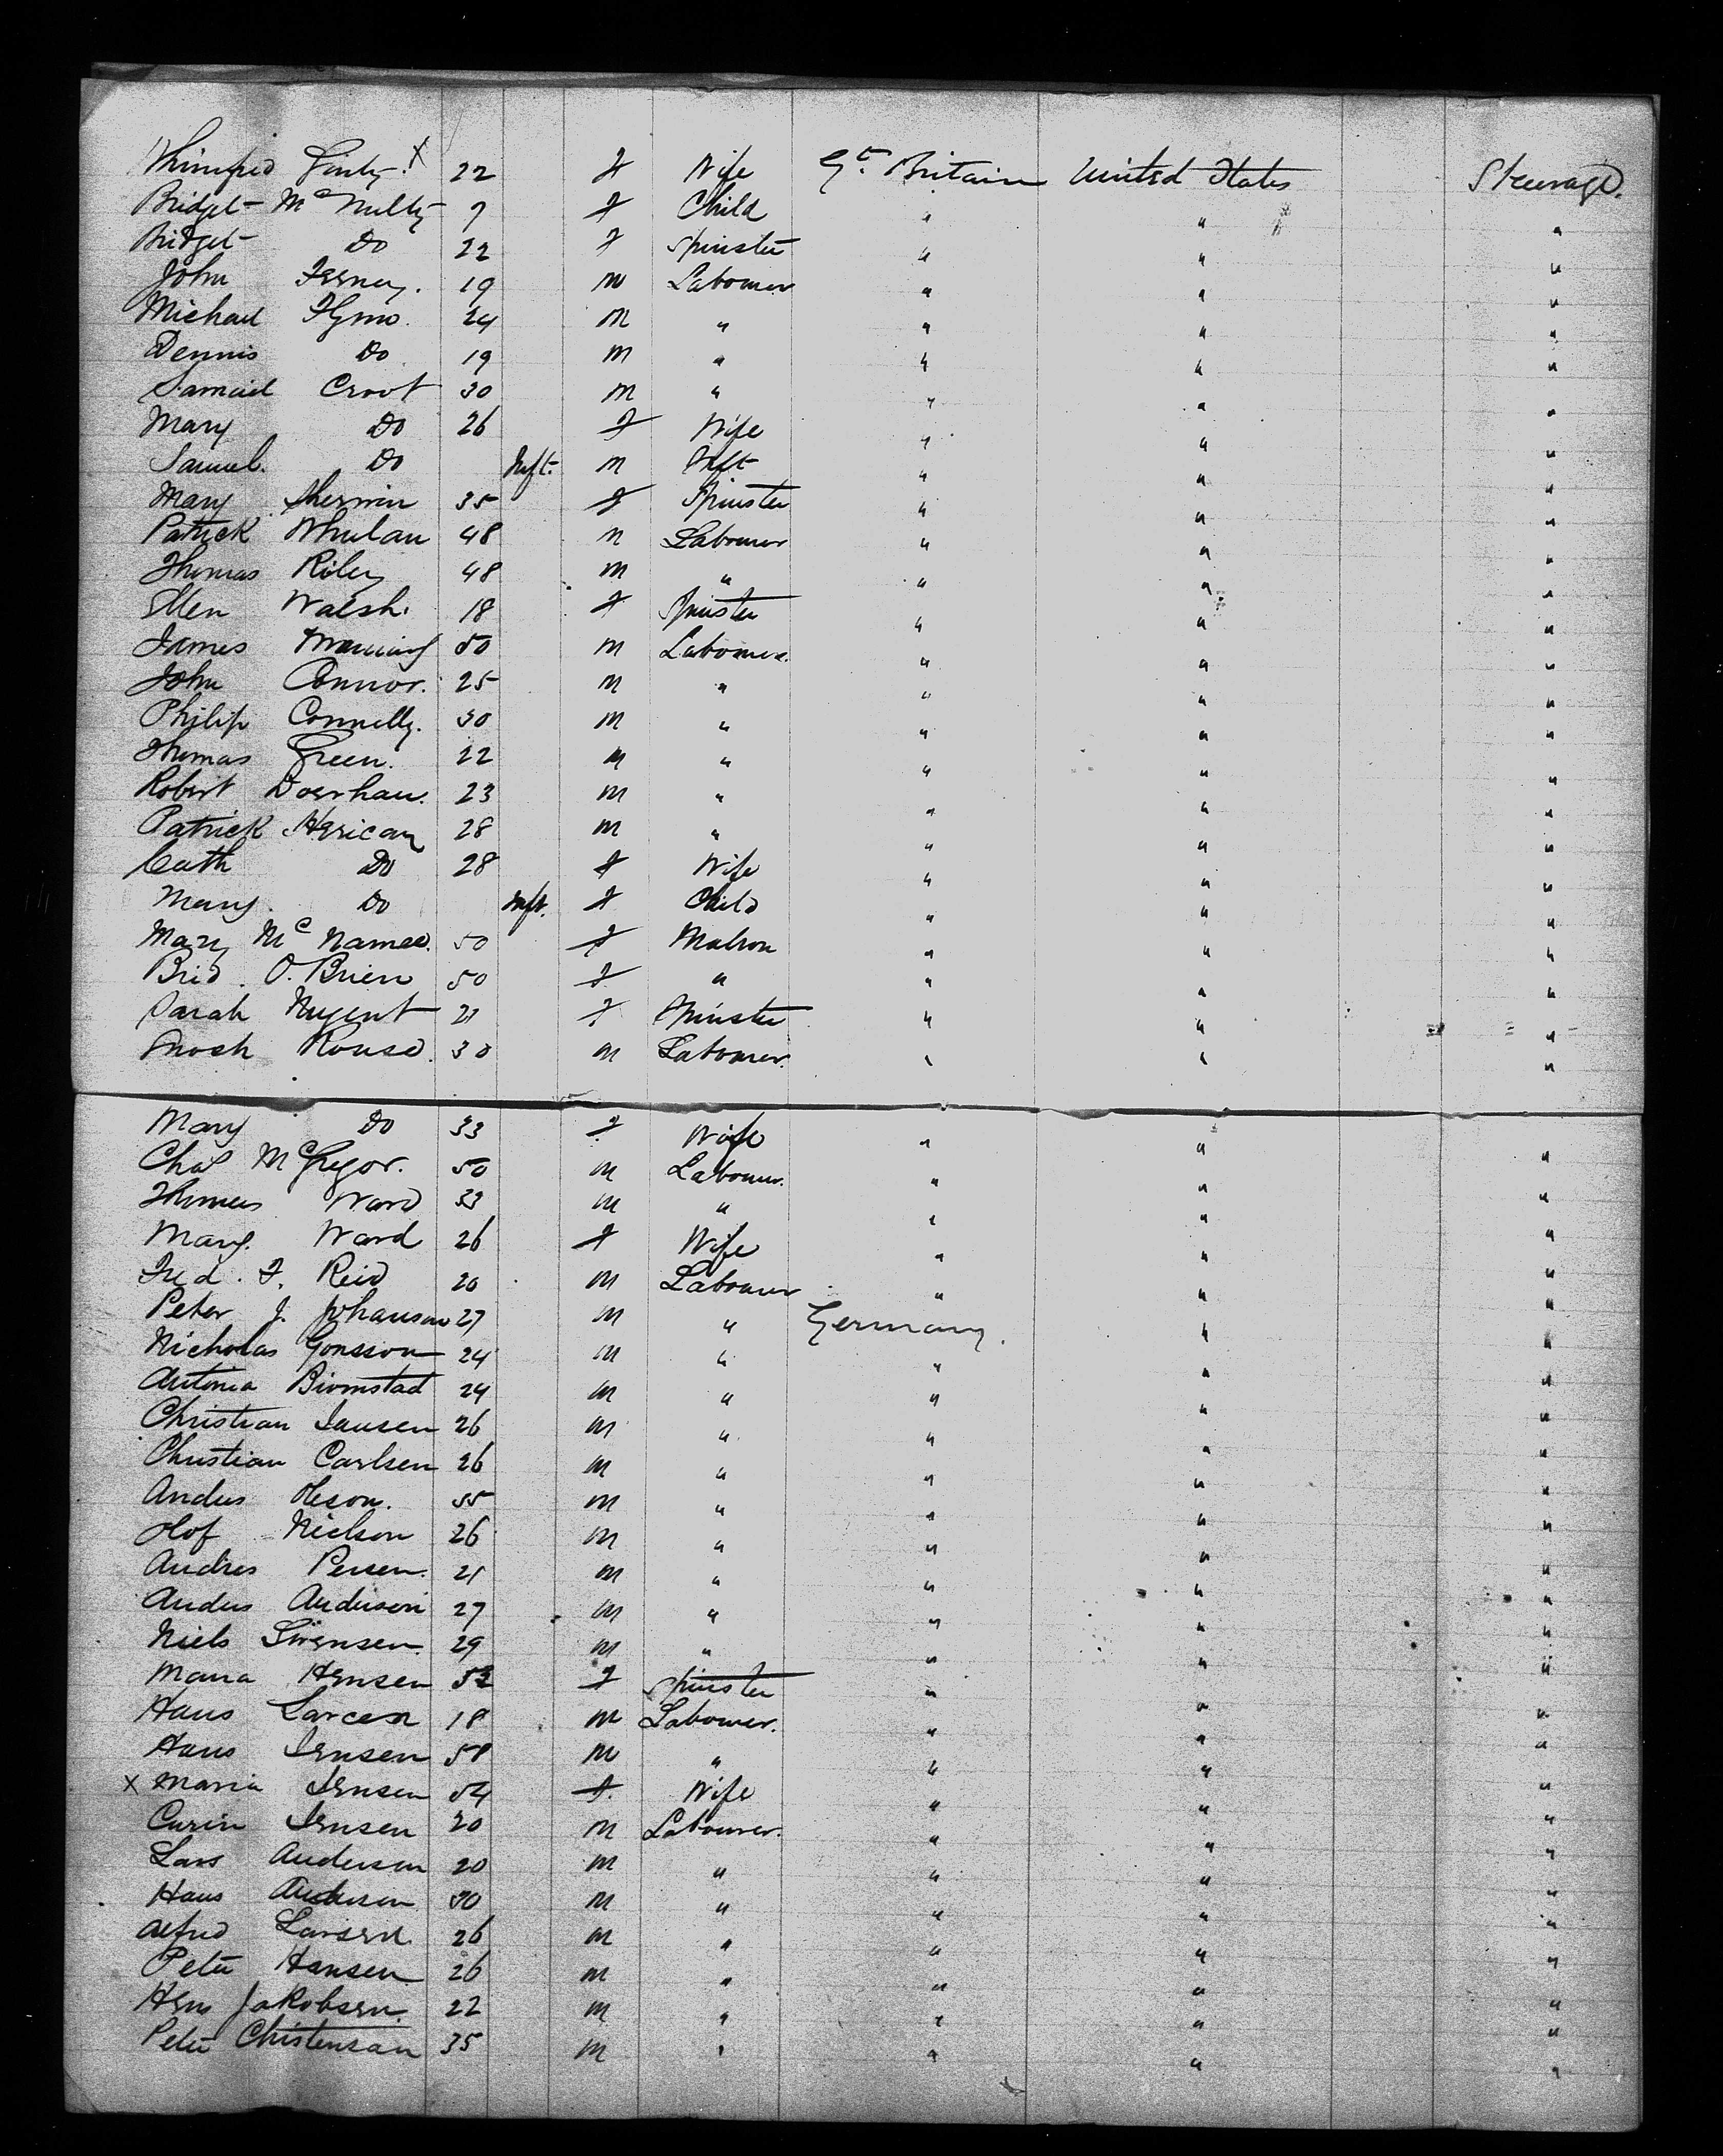 Whinifred Ginty X 22 F Wife Gt. Britain United States Steerage.
Bridget Mc Nulty 9 F Child " " "
Bridget Do 22 F Spinster " " "
John Ferney. 19 M Labourer " " "
Michael Flynn. 24 M " " " "
Dennis Do 19 M " " " "
Samuel Croot 30 M " " " "
Mary Do 26 F Wife " " "
Samuel. Do Inft. M Inft " " "
Mary Sherwin 35 F Spinster " " "
Patrick Whelan 48 M Labourer " " "
Thomas Riley 48 M " " " "
Ellen Walsh. 18 F Spinster " " "
James Manning 50 M Labourer. " " "
John Connor. 25 M " " " "
Philip Connelly. 30 M " " " "
Thomas Green. 22 M " " " "
Robert 23 M " " " "
Patrick Herican 28 M " " " "
Cath Do 28 F Wife " " "
Mary. Do Inft. F Child " " "
Mary Mc Namee. 50 F Matron " " "
Brid. O.Brien 50 F " " " "
Sarah Nugent 21 F Spinster " " "
Enoch Rouse. 30 M Labourer. " " "
Mary Do 33 F Wife " " "
Chas McGregor. 50 M Labourer. " " "
Thomas Ward 33 M " " " "
Mary. Ward 26 F Wife " " "
Fred. F. Reid 20 M Labourer " " "
Peter J. Johanson 27 M " Germany. " "
Nicholas Gonsson 24 M " " " "
Antonia Biornstad 24 M " " " "
Christian Jansen 26 M " " " "
Christian Carlsen 26 M " " " "
Andus Oleson. 35 M " " " "
Olof Nielson 26 M " " " "
Andres Persen. 21 M " " " "
Andus Anderson 27 M " " " "
Niels Sörensen. 29 M " " " "
Maria Hensen 52 F Spinster " " "
Hans Larcen 18 M Labourer. " " "
Hans Jensen 58 M " " " "
X Maria Jensen 54 F. Wife " " "
Jensen 20 M Labourer. " " "
Lars Anderson 20 M " " " "
Hans Anderson 30 M " " " "
Alfred Larsen 26 M " " " "
Peter Hansen 26 M " " " "
Hens Jakobsen. 22 M " " " "
Peter Christensan 35 M " " " "